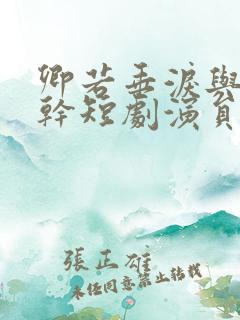 卿若垂淚與
幹短劇演員
張正雄
未經同意禁止轉載